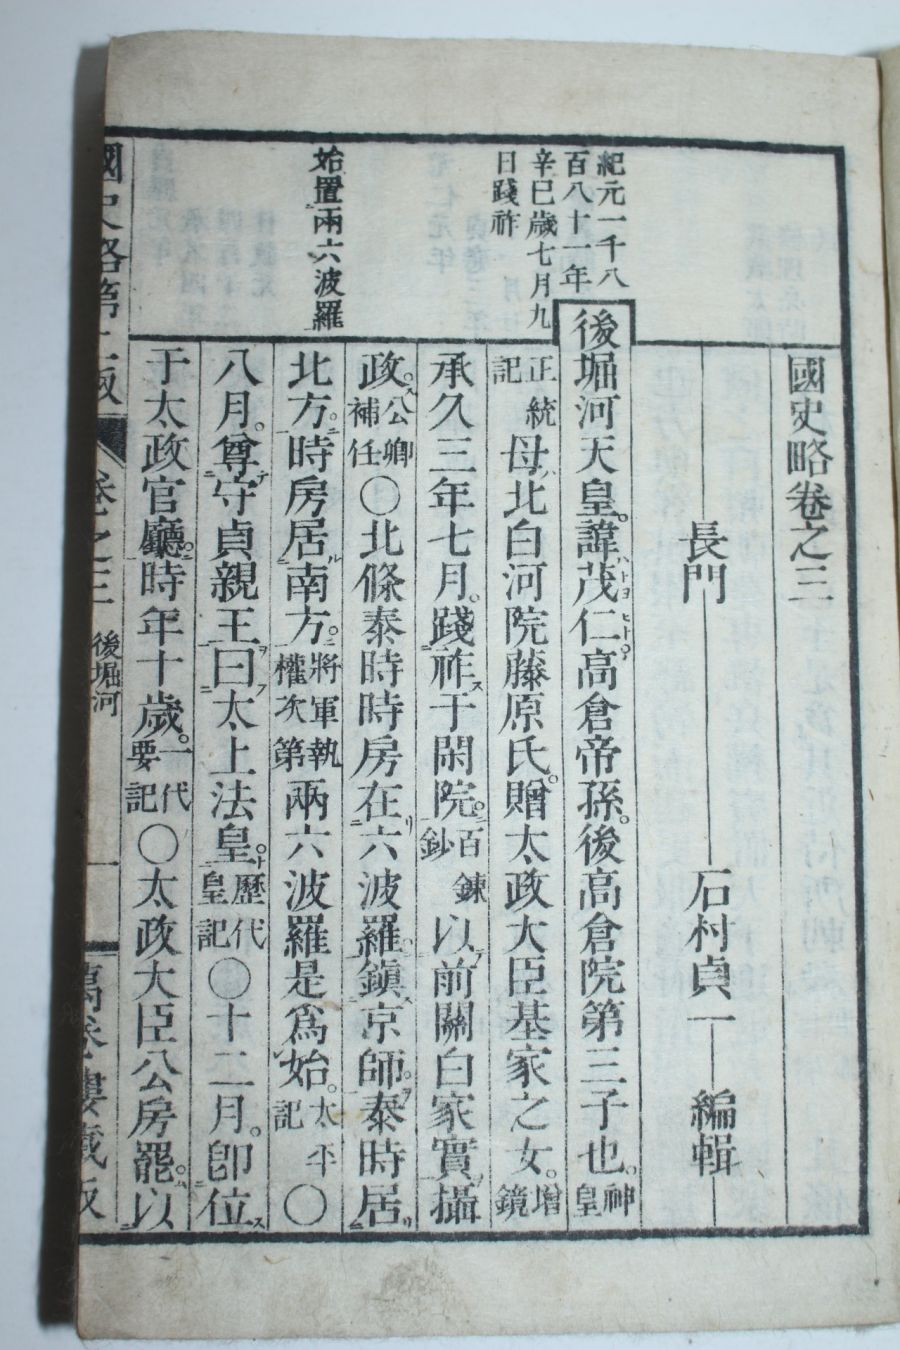 國史略卷之三
長門 石村貞一 編輯
紀元一千八
百八十一年
辛巳歲七月九
日踐祚
後堀河天皇。諱茂仁。高倉帝孫。後高倉院第三子也。神皇
正統記母北白河院藤原氏。贈太政大臣基家之女。增鏡
承久三年七月。踐祚于閑院。百鍊鈔以前關白家實攝
政。公卿補任〇北條泰時時房在六波羅。鎭京師。泰時居
始置兩六波羅
北方。時房居南方。將軍執權次第兩六波羅是爲始。太平記〇
八月。尊守貞親王曰太上法皇。歷代皇記〇十二月。卽位
于太政官廳。時年十歲。一代要記〇太政大臣公房罷。以
國史略第二版 卷之三 後堀河 一 萬卷樓藏版